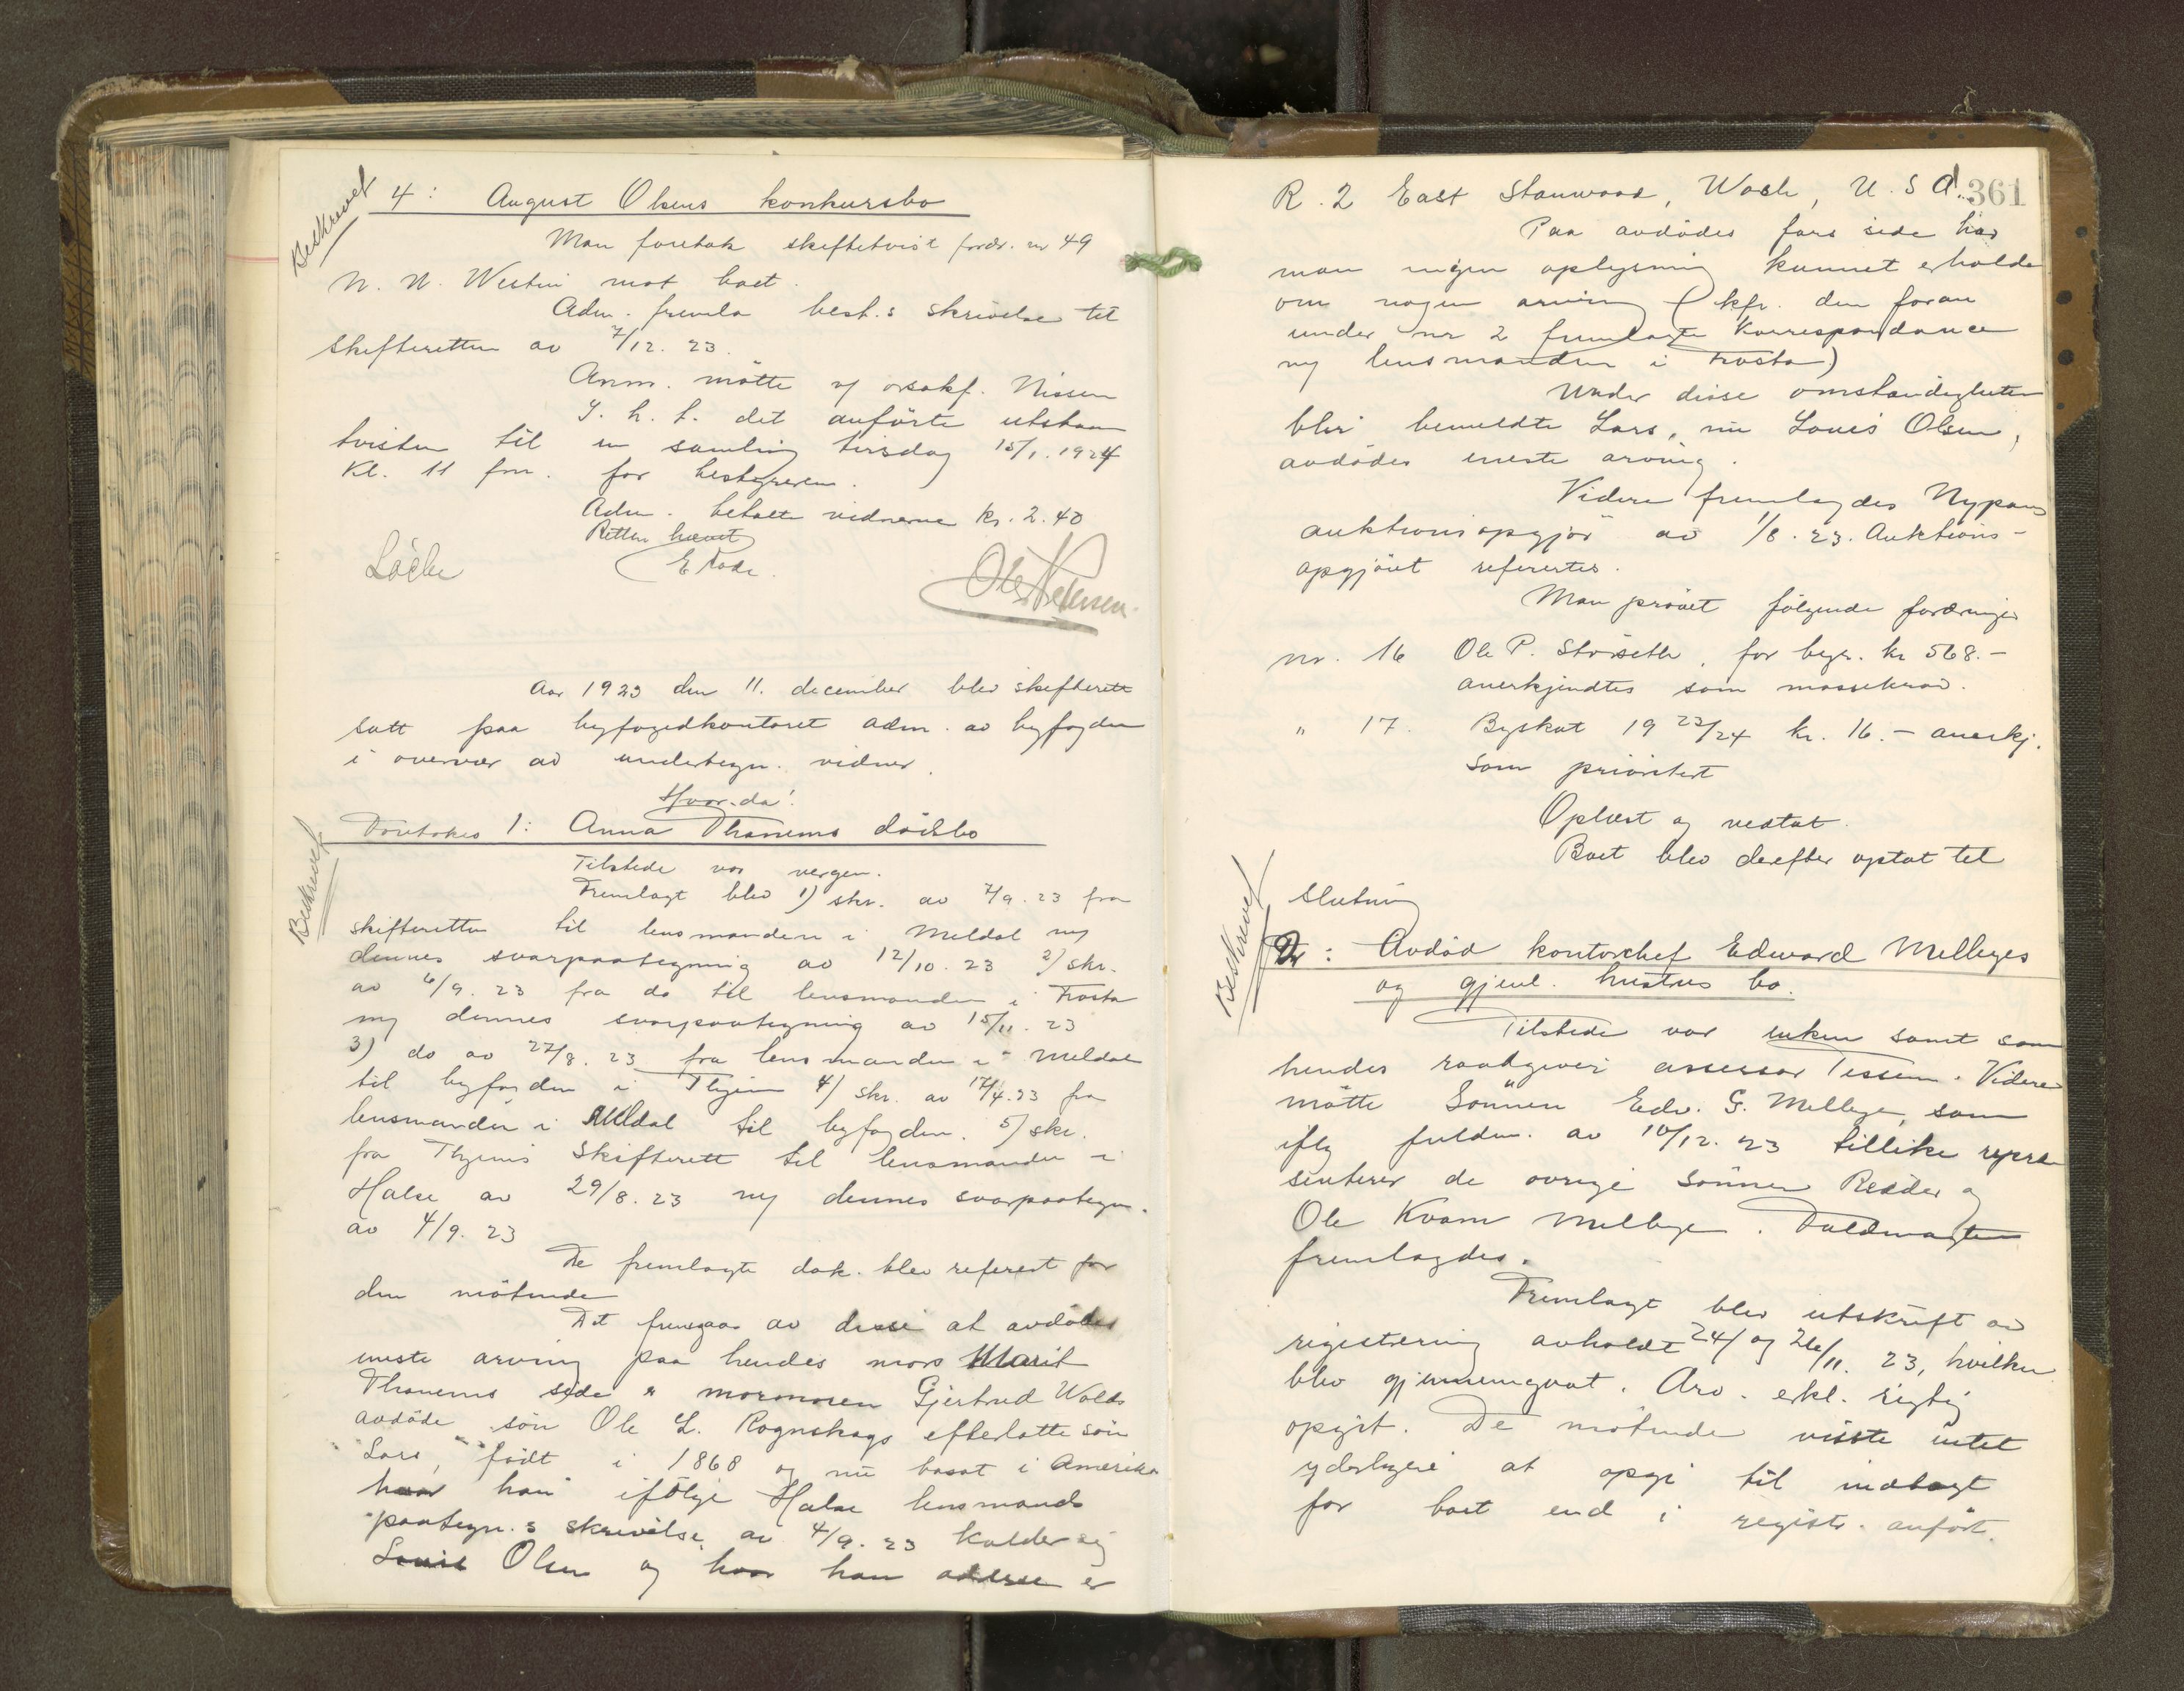 Beskrevet
4: August Olsens konkursbo
Man foretok skiftetvist fordr. nr 49
N. N. Westin mot boet.
Adm. fremla best.s skrivelse til
skifteretten av 7/12. 23.
Anm. møtte v/ orsakf. Nissen
I. h. t. det anførte utstaar
tvisten til en samling tirsdag 15/1. 1924
kl. 11 fm. for bestyreren.
Adm. betalte vidnerne kr. 2.40
Retten hævet
E Rode.
Ole Pedersen.
Aar 1923 den 11. december blev skifterett
satt paa byfogedkontoret adm. av byfogden
i overvær av undertegn. vidner.
Hvor da:
Foretokes 1: Anna Thanems dødsbo
Beskrevet
Tilstede var vergen.
Fremlagt blev 1) skr. av 7/9. 23 fra
skifteretten til lensmanden i Meldal m/
dennes svarpaategning av 12/10. 23 2) skr.
av 6/9. 23 fra do til lensmanden i Frosta
m/ dennes svarpaategning av 15/11. 23
3) do av 27/8. 23 fra lensmanden i Meldal
til byfogden i Thjem 4) skr. av 17/4. 23 fra
lensmanden i Meldal til byfogden. 5) skr.
fra Thjems Skifterett til lensmanden i
Halse av 29/8. 23 m/ dennes svarpaategn.
av 4/9. 23
De fremlagte dok. blev referert for
den møtende
Det fremgaar av disse at avdødes
eneste arving paa hendes mors Marit
Thanems side er mormoren Gjertrud Wolds
avdøde søn Ole L. Rognskogs efterlatte søn
Lars, født i 1868 og nu bosat i Amerika
hvor han ifølge Halse lensmands
paategn.s skrivelse av 4/9. 23 kalder sig
Louis Olsen og hvor han adresse er
361
R. 2 East Stanwood, Wash, U. S A.
Paa avdødes fars side har
man ingen oplysning kunnet erholde
om nogen arving (kfr. den foran
under nr 2 fremlagte korrespondance
m/ lensmanden i Frosta)
Under disse omstændigheter
blir bemeldte Lars, nu Louis Olsen,
avdødes eneste arving.
Videre fremlagdes Nypans
auktionsopgjør av 1/8. 23. Auktions-
opgjøret refererteś.
Man prøvet følgende fordringer
nr. 16 Ole P. Størseth, for begr. kr 568.-
anerkjendtes som massekrav.
" 17. Byskat 19 23/24 kr. 16.- anerkj.
som prioritert
Oplæst og vedtat.
Boet blev derefter optat til
slutning
Beskrevet
2: Avdød kontorchef Edward Mellbyes
og gjenl. hustrus bo.
Tilstede var enken samt som
hendes raadgiver assessor Tessem. Videre
møtte sønnen Edv. G. Mellbye, som
iflg fuldm. av 10/12. 23 tillike repræ
senterer de øvrige sønner Reidar og
Ole Kvam Mellbye. Fuldmagten
fremlagdes.
Fremlagt blev utskrift av
registrering avholdt 24/ og 26/11. 23, hvilken
blev gjennemgaat. Arv. erkl. rigtig
opgit. De møtende visste intet
yderligere at opgi til indtægt
for boet end i registr. anført.